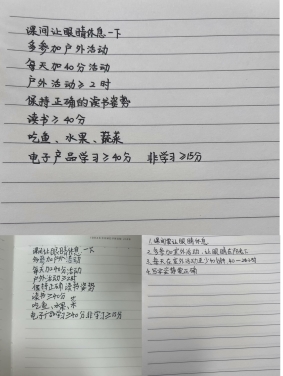 课间让眼睛休息一下
多参加户外活动
每天加40分活动
户外活动≥2时
保持正确的读书姿势
读书≥40分
吃鱼、水果、蔬菜
电子产品学习≥40分 非学习≥15分
课间让眼睛休息一下
多参加户外活动
每天加40分活动
户外活动≥2时
保持正确读书姿势
读书≥40分
吃鱼、水果、
电子产品学习≥40分非学习≥15分
1.课间要让眼睛休息
2.多参加室外活动,让眼睛
3.每天在室外活动至少40分钟
4.写字姿势要正确